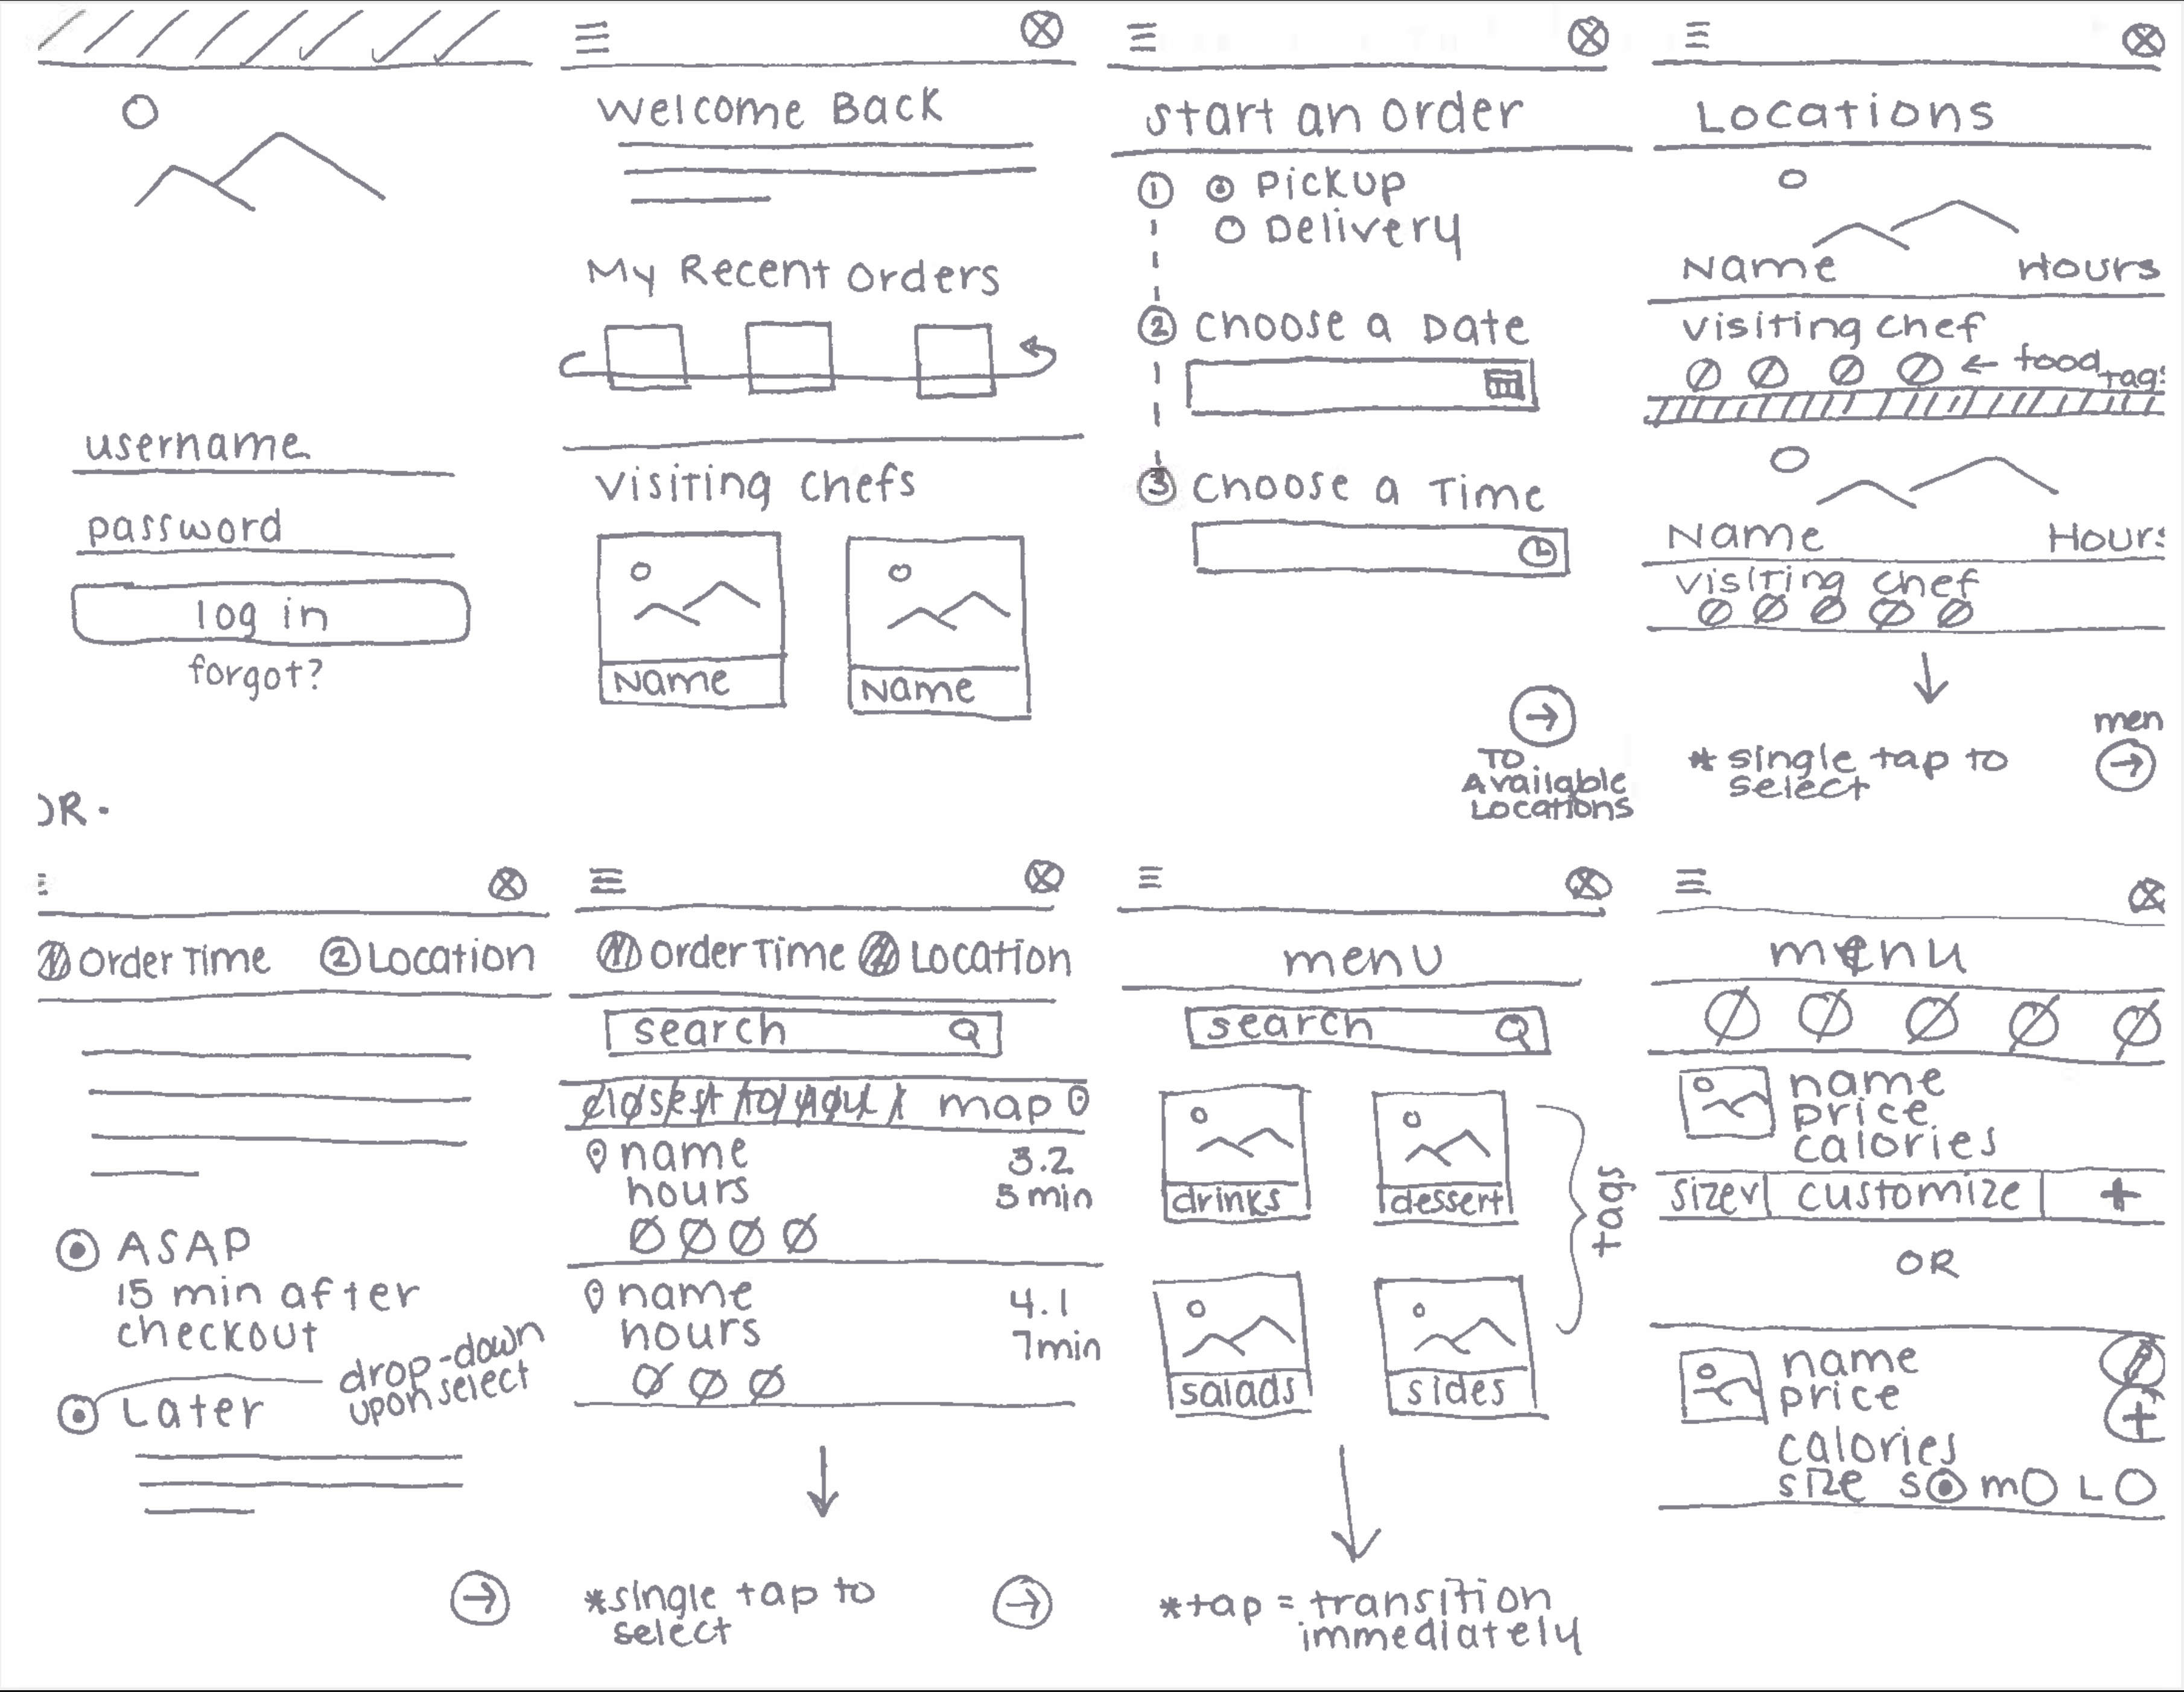 username
password
log in
forgot?
OR.
Welcome Back
My Recent Orders
Visiting Chefs
Name
Name
Start an Order
1 Pickup
Delivery
2 Choose a Date
3 Choose a Time
TO
Available
Locations
Locations
Name Hours
Visiting Chef
← food tags
Name Hours
Visiting Chef
* single tap to
select
men
1 Order Time 2 Location
ASAP
15 min after
checkout
Later
drop-down
upon select
1 Order Time 2 Location
search
closest to you map
name 3.2
hours 5 min
name 4.1
hours 7min
*single tap to
select
menu
search
drinks
dessert
salads
sides
tags
*tap = transition
immediately
menu
name
price
calories
size customize +
OR
name
price
calories
size S M L